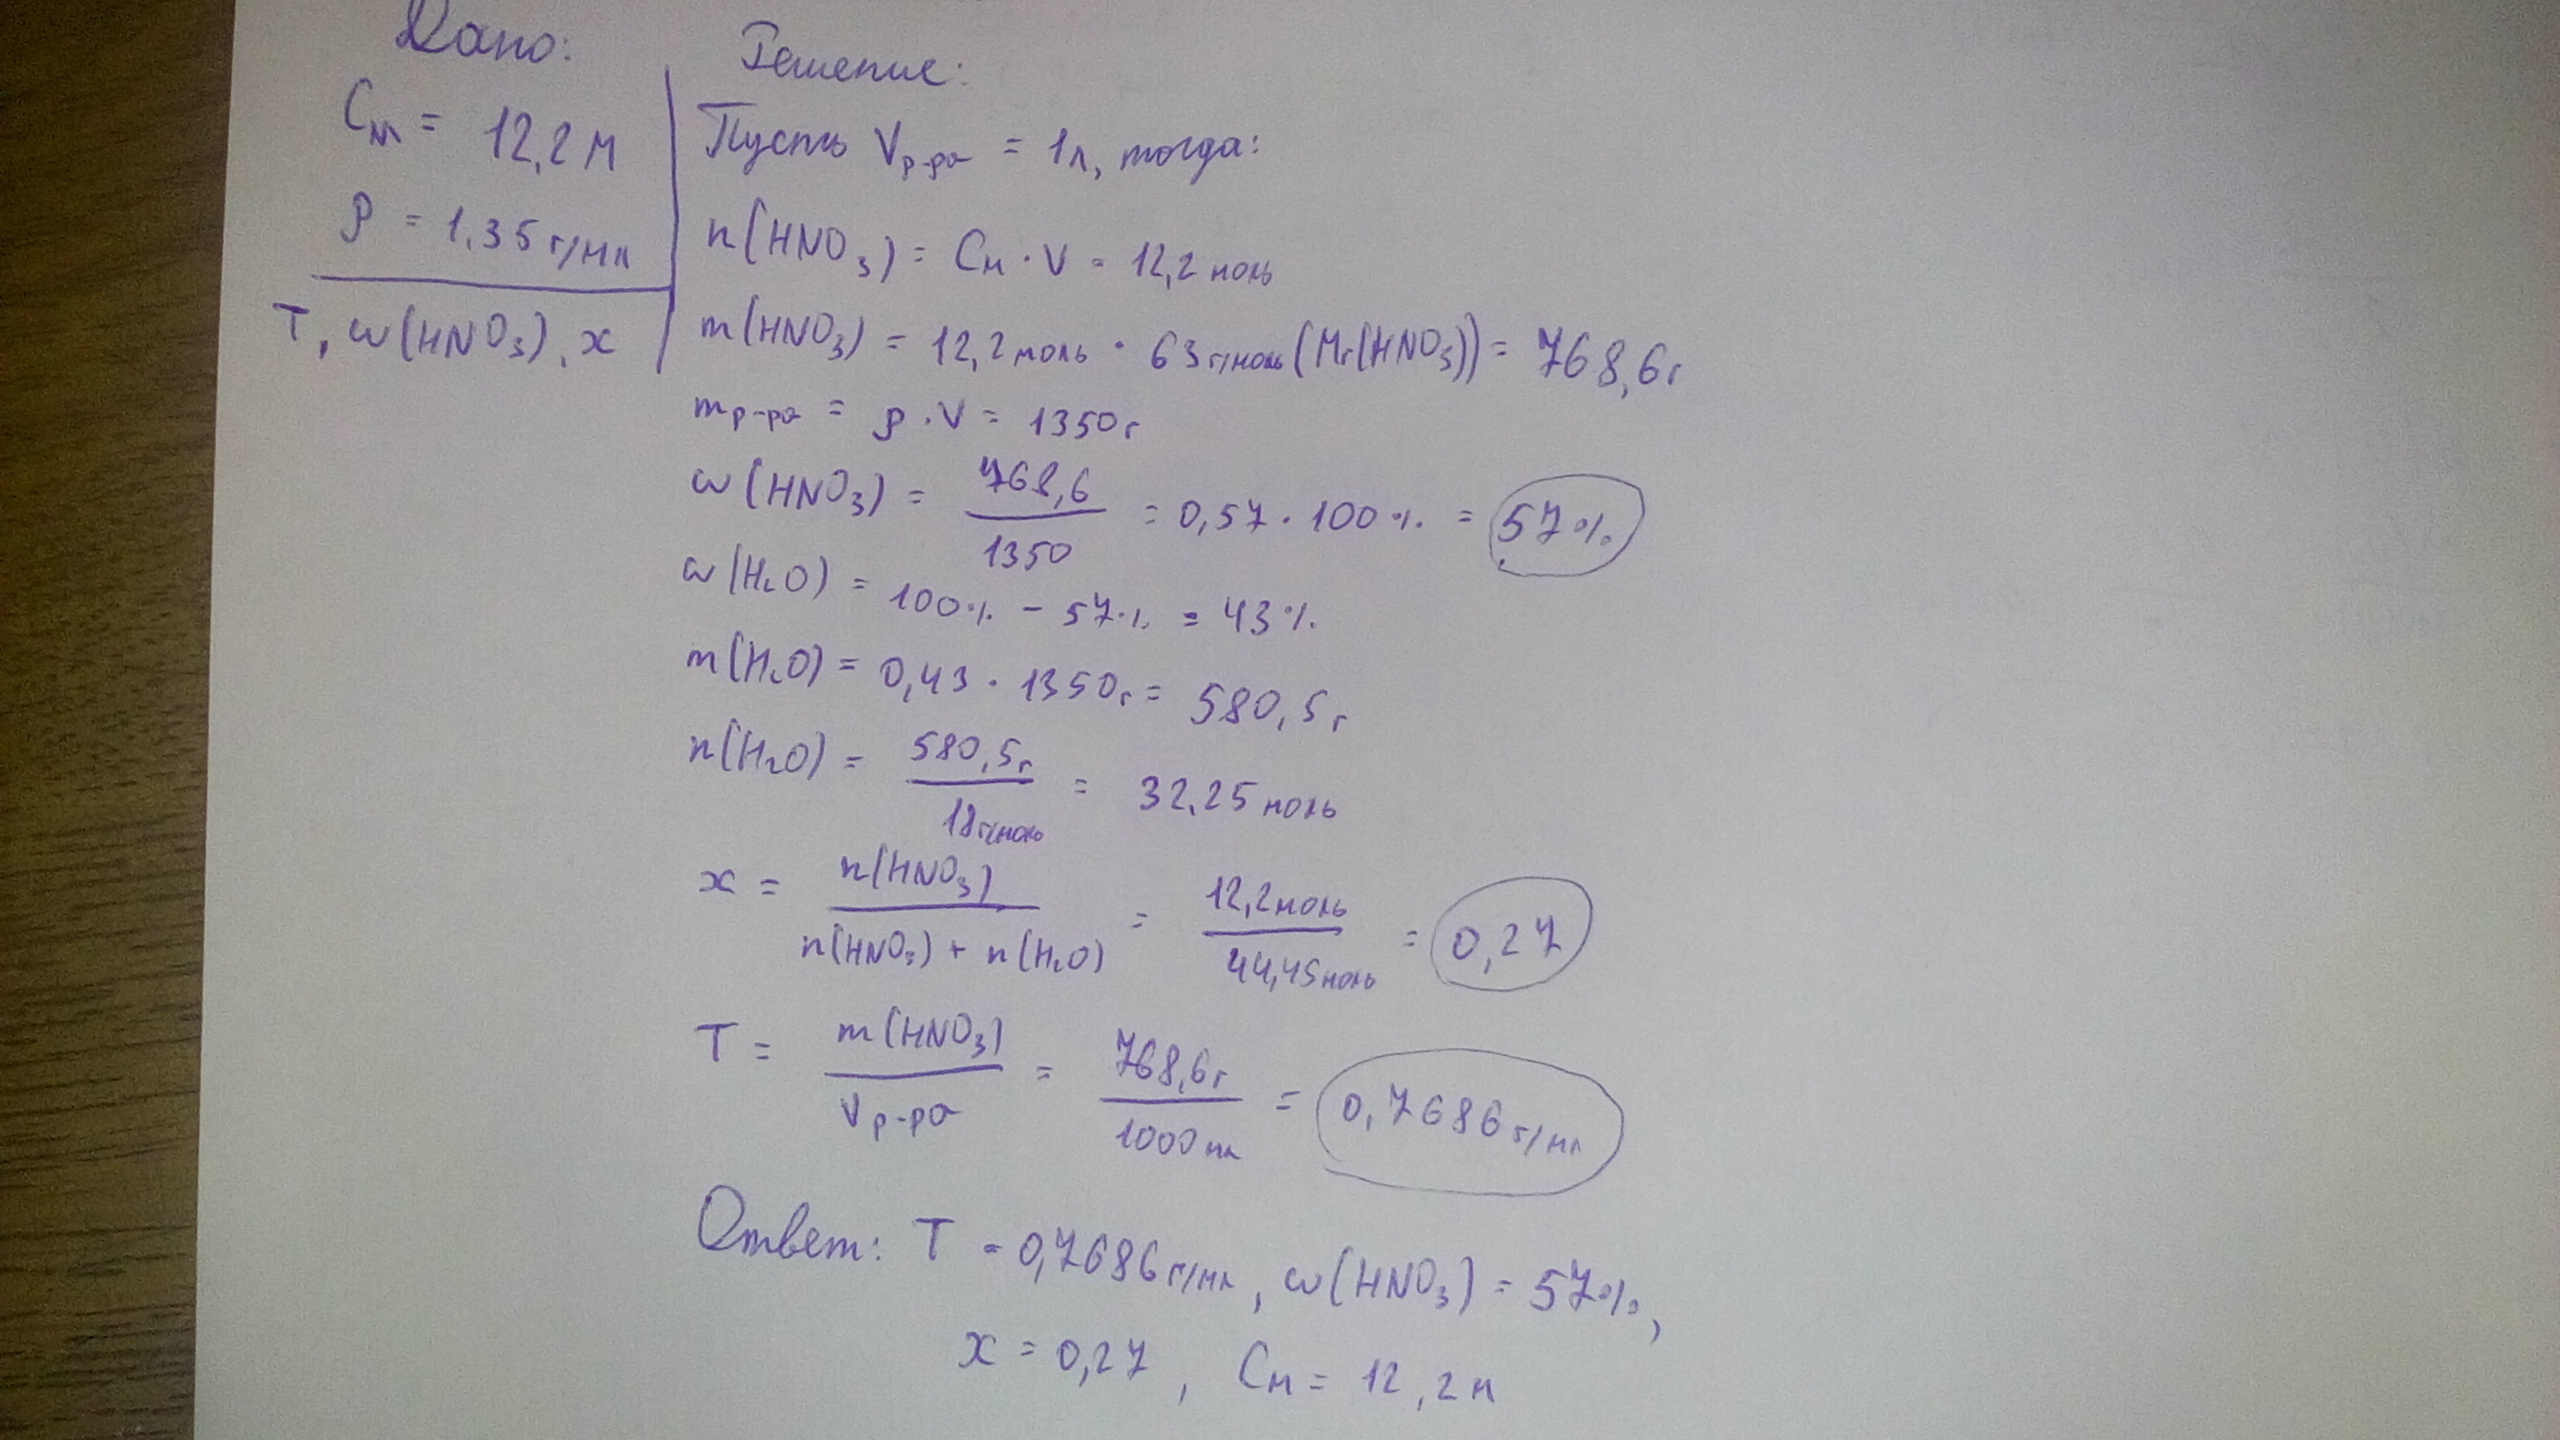 Дано:
C_м = 12,2 М
ρ = 1,35 г/мл
T, ω(HNO₃), x
Решение:
Пусть V_р-ра = 1л, тогда:
n(HNO₃) = C_м · V = 12,2 моль
m(HNO₃) = 12,2 моль · 63 г/моль (Mr(HNO₃)) = 768,6 г
m_р-ра = ρ · V = 1350 г
ω(HNO₃) = 768,6 / 1350 = 0,57 · 100% = 57%
ω(H₂O) = 100% - 57% = 43%
m(H₂O) = 0,43 · 1350 г = 580,5 г
n(H₂O) = 580,5 г / 18 г/моль = 32,25 моль
x = n(HNO₃) / n(HNO₃) + n(H₂O) = 12,2 моль / 44,45 моль = 0,27
T = m(HNO₃) / V_р-ра = 768,6 г / 1000 мл = 0,7686 г/мл
Ответ: T = 0,7686 г/мл, ω(HNO₃) = 57%,
x = 0,27, C_м = 12,2 М